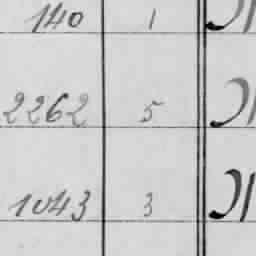 140 1
2262 5
1043 3